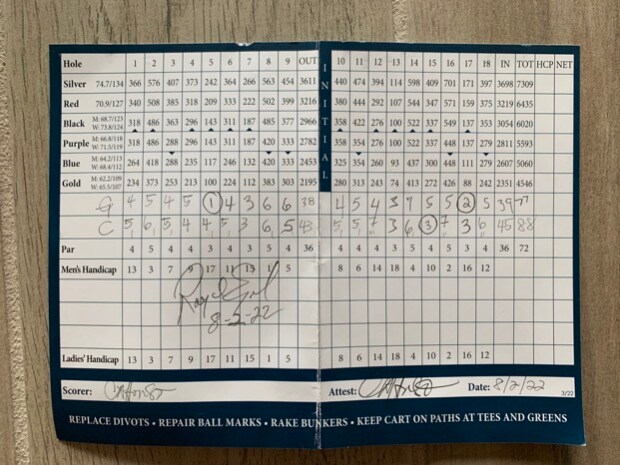 Hole 1 2 3 4 5 6 7 8 9 OUT INITIAL 10 11 12 13 14 15 16 17 18 IN TOT HCP NET
Silver 74.7/134 366 576 407 373 242 364 266 563 454 3611 440 474 394 114 598 409 701 171 397 3698 7309
Red 70.9/127 340 508 385 318 209 333 222 502 399 3216 380 444 292 107 544 347 571 159 375 3219 6435
Black M: 68.7/123 W: 73.8/124 318 486 363 296 143 311 187 485 377 2966 358 422 276 100 522 337 549 137 353 3054 6020
Purple M: 66.8/118 W: 71.5/119 318 486 288 296 143 311 187 420 333 2782 358 354 276 100 522 337 448 137 279 2811 5593
Blue M: 64.2/113 W: 68.4/112 264 418 288 235 117 246 132 420 333 2453 325 354 260 93 437 300 448 111 279 2607 5060
Gold M: 62.2/109 W: 65.5/107 234 373 253 213 100 224 112 383 303 2195 280 313 243 74 413 272 426 88 242 2351 4546
G 4 5 4 5 1 4 3 6 6 38 4 5 4 3 7 5 5 2 5 39 77
C 5 6 5 4 4 5 3 6 5 43 5 5 7 3 6 3 7 3 6 45 88
Par 4 5 4 4 3 4 3 5 4 36 4 4 4 3 5 4 5 3 4 36 72
Men's Handicap 13 3 7 9 17 11 15 1 5 8 6 14 18 4 10 2 16 12
8-2-22
Ladies' Handicap 13 3 7 9 17 11 15 1 5 8 6 14 18 4 10 2 16 12
Scorer: Attest: Date: 8/2/22 3/22
REPLACE DIVOTS • REPAIR BALL MARKS • RAKE BUNKERS • KEEP CART ON PATHS AT TEES AND GREENS